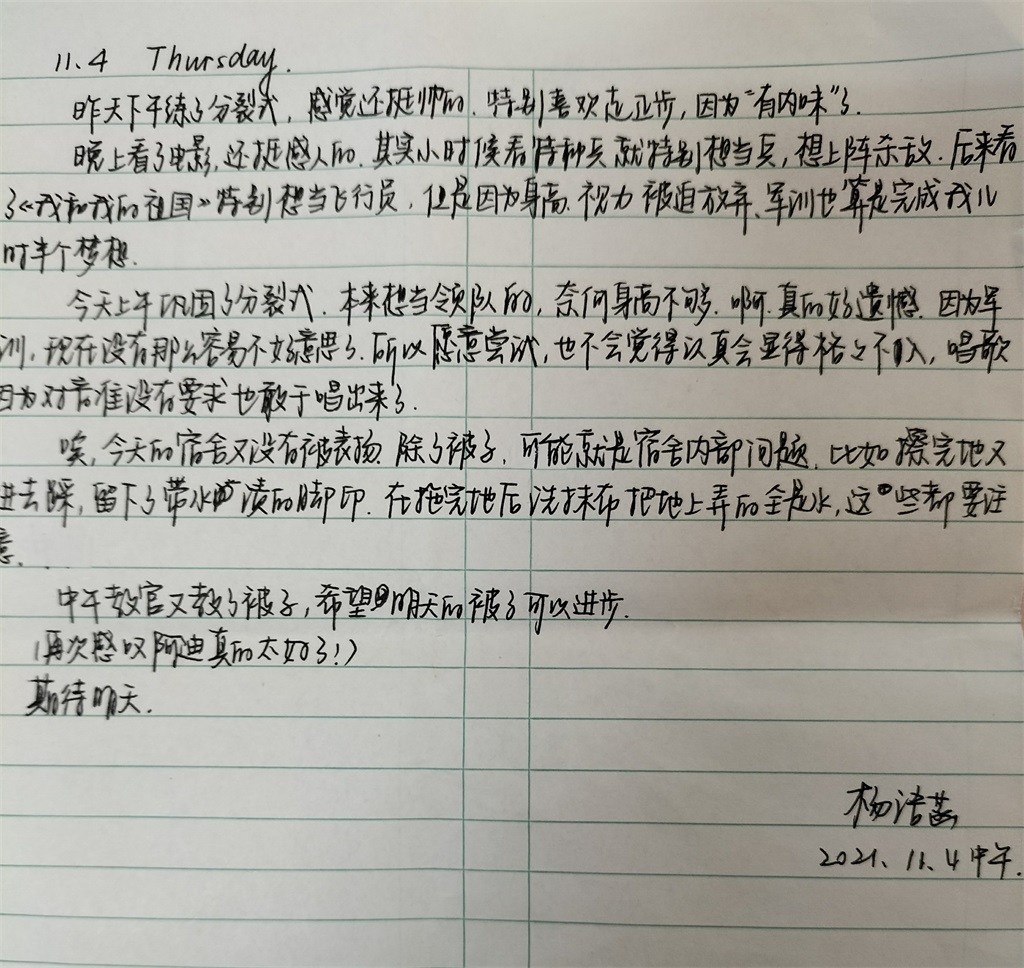 11.4 Thursday.
昨天下午练了分裂式，感觉还挺帅的，特别喜欢走正步，因为“有内味”了.
晚上看了电影，还挺感人的．其实小时候看特种兵就特别想当兵，想上阵杀敌．后来看
了《我和我的祖国》特别想当飞行员，但是因为身高、视力被迫放弃、军训也算是完成我儿
时半个梦想．
今天上午巩固了分裂式．本来想当领队的，奈何身高不够．啊．真的好遗憾．因为军
训，现在没有那么容易不好意思了．所以愿意尝试，也不会觉得认真会显得格格不入，唱歌
因为对音准没有要求也敢于唱出来了．
唉，今天的宿舍又没有被表扬．除了被子，可能就是宿舍内部问题．比如擦完地又
进去踩，留下了带水渍的脚印．在拖完地后洗抹布把地上弄的全是水，这些都要注
意．
中午教官又教了被子，希望明天的被子可以进步．
（再次感叹阿迪真的太好了！）
期待明天．
杨洁
2021、11.4中午.